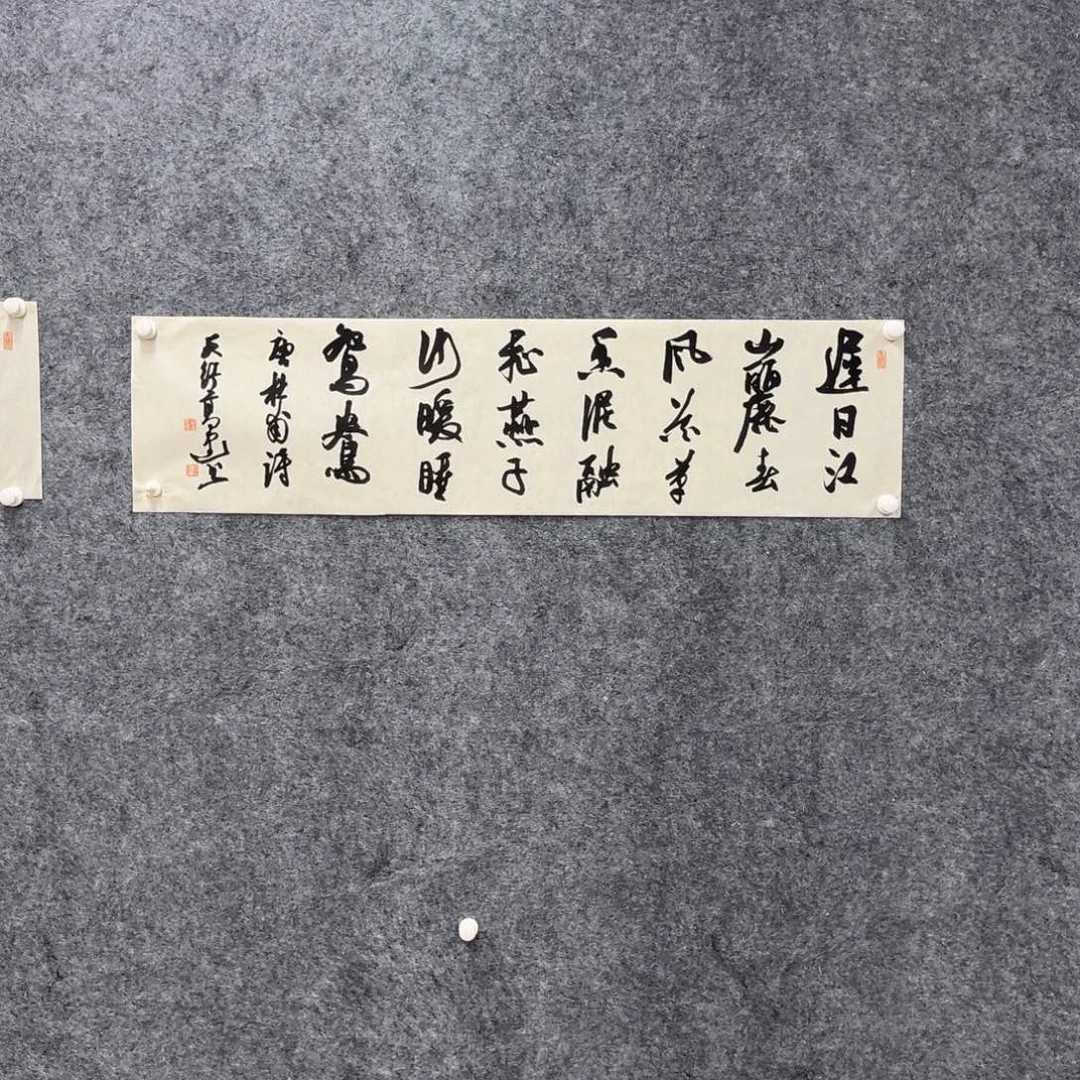 遲日江
山麗春
風花草
香泥融
飛燕子
沙暖睡
鴛鴦
唐杜甫詩